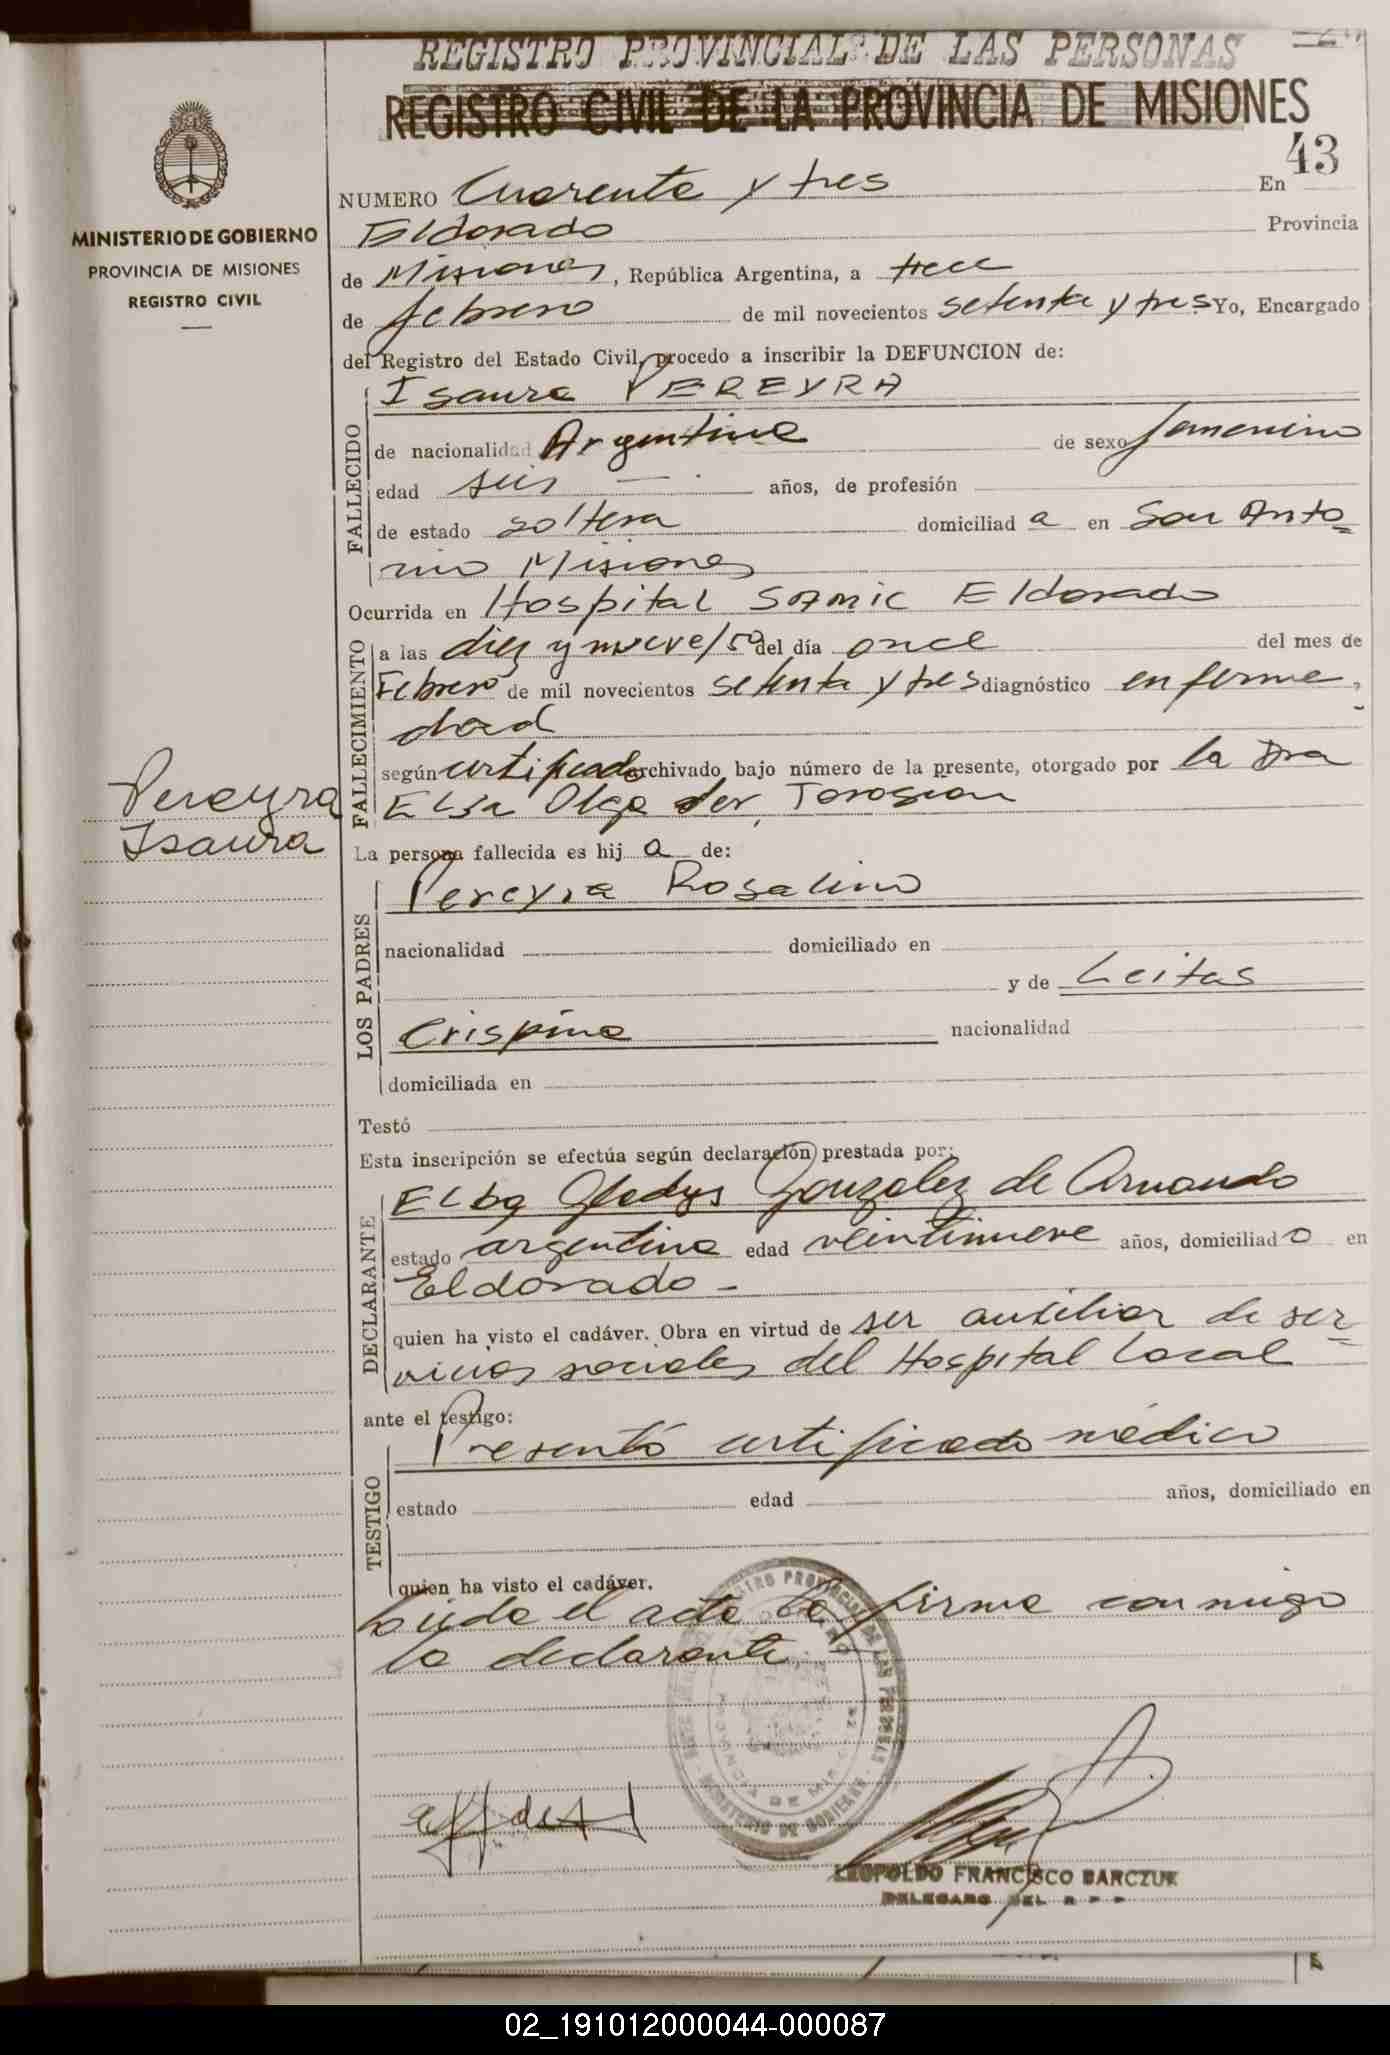 REGISTRO PROVINCIAL DE LAS PERSONAS
REGISTRO CIVIL DE LA PROVINCIA DE MISIONES
43
MINISTERIO DE GOBIERNO
PROVINCIA DE MISIONES
REGISTRO CIVIL
NUMERO Cuarenta y tres En
Eldorado Provincia
de Misiones, República Argentina, a trece
de febrero de mil novecientos setenta y tres Yo, Encargado
del Registro del Estado Civil, procedo a inscribir la DEFUNCION de:
FALLECIDO
Isaura PEREYRA
de nacionalidad Argentina de sexo femenino
edad seis años, de profesión
de estado soltera domiciliad a en San Anto=
nio Misiones
Ocurrida en Hospital SAMIC Eldorado
FALLECIMIENTO
a las diez y nueve/50 del día once del mes de
Febrero de mil novecientos setenta y tres diagnóstico enferme-
dad
según certificado archivado bajo número de la presente, otorgado por la Dra
Elsa Olga der Torosian
Pereyra
Isaura
La persona fallecida es hij a de:
LOS PADRES
Pereyra Rosalino
nacionalidad domiciliado en
y de Leitas
Crispina nacionalidad
domiciliada en
Testó
Esta inscripción se efectúa según declaración prestada por:
DECLARANTE
Elba Gladys Gonzalez de
estado argentina edad veintinueve años, domiciliad o en
Eldorado -
quien ha visto el cadáver. Obra en virtud de ser auxiliar de ser=
vicios sociales del Hospital local
ante el testigo:
TESTIGO
Presentó certificado médico
estado edad años, domiciliado en
quien ha visto el cadáver.
Leída el acta la firma conmigo
la declarante.
REGISTRO PROVINCIAL DE LAS PERSONAS
ELDORADO
PROVINCIA DE MISIONES
MINISTERIO DE GOBIERNO
LEOPOLDO FRANCISCO BARCZUK
DELEGADO DEL R P P
02_191012000044-000087